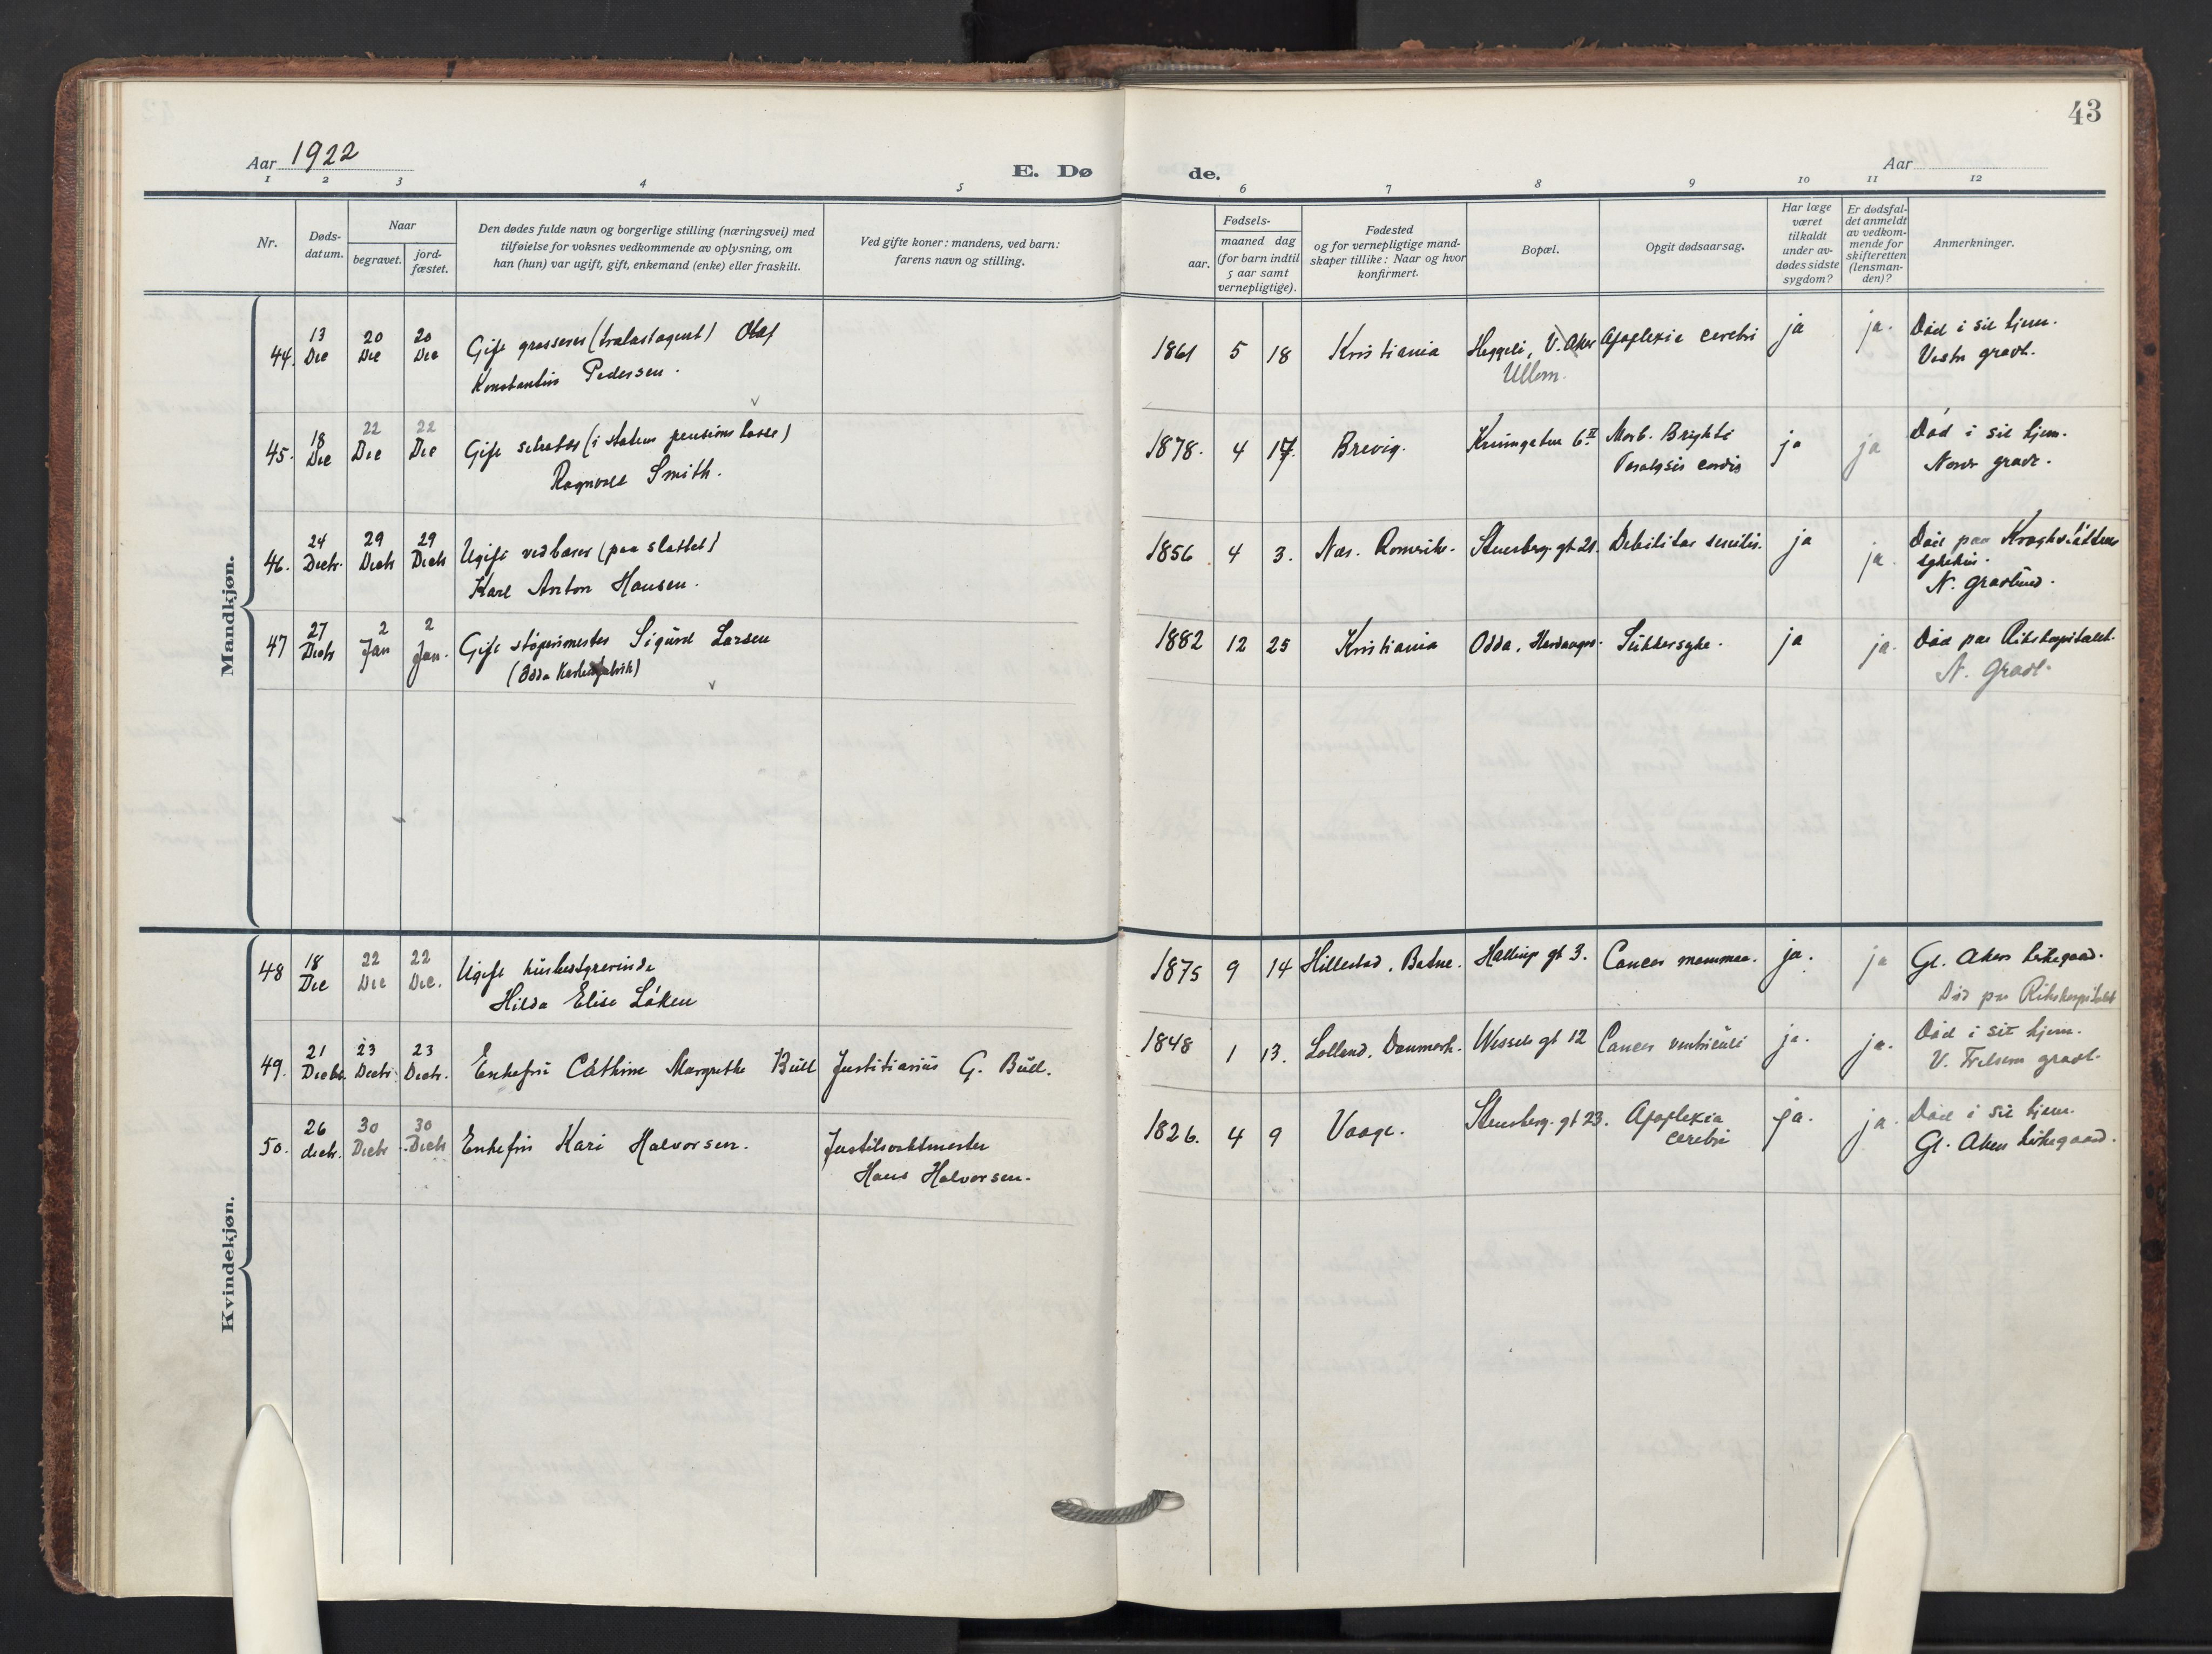 43
Aar 1922
E. Dø
de.
Aar
1 2 3 4 5 6 7 8 9 10 11 12
Nr.
Døds-
datum.
Naar
begravet.
jord-
fæstet.
Den dødes fulde navn og borgerlige stilling (næringsvei) med
tilføielse for voksnes vedkommende av oplysning, om
han (hun) var ugift, gift, enkemand (enke) eller fraskilt.
Ved gifte koner: mandens, ved barn:
farens navn og stilling.
Fødsels-
aar.
maaned dag
(for barn indtil
5 aar samt
vernepligtige).
Fødested
og for vernepligtige mand-
skaper tillike: Naar og hvor
konfirmert.
Bopæl.
Opgit dødsaarsag.
Har læge
været
tilkaldt
under av-
dødes sidste
sygdom?
Er dødsfal-
det anmeldt
av vedkom-
mende for
skifteretten
(lensman-
den)?
Anmerkninger.
Mandkjøn.
44. 13 Dec 20 Dec 20 Dec Gift grosserer (trælastagent) Olaf
Konstantin Pedersen.
1861 5 18 Kristiania Heggeli, V. Aker Apoplexia cerebri ja ja. Död i sit hjem.
Ullern. Vestre gravl.
45. 18 Dec 22 Dec 22 Dec Gift sekretær (i statens pensionskasse)
Ragnvald Smith.
1878. 4 17. Brevig. 6 II Morb. Brighti ja ja Död i sit hjem.
Paralysis cordis Nordr gravl.
46. 24 Decbr. 29 Decbr 29 Decbr Ugift vedbærer (paa slottet)
Karl Anton Hansen.
1856 4 3. Nes. Romerike. Stensberg. gt 21. Debilitas senilis. ja ja. Död paa Kroghstöttens
sykehus.
N. Gravlund.
47 27 Decbr 2 Jan 2 Jan. Gift støperimester Sigurd Larsen
(Odda fabrik)
1882 12 25 Kristiania Odda, Hardanger. Sukkersyke. ja ja. Död paa Rikshospitalet.
N. Gravl.
Kvindekjøn.
48 18 Dec 22 Dec 22 Dec. Ugift husbestyrerinde
Hilda Elise Löken
1875 9 14 Hillestad, Botne. Holtegt 3. Cancer mammae. ja. ja Gl. Akers kirkegaard.
Död paa Rikshospitalet
49. 21 Decbr. 23 Decbr. 23 Decbr. Enkefru Cathrine Margrethe Bull Justitiarius G. Bull.
1848 1 13. Lolland, Danmark. Wessels gt 12 Cancer ventriculi ja. ja. Död i sit hjem.
V. Frelsers gravl.
50. 26 decbr. 30 Decbr 30 Decbr Enkefru Kari Halvorsen. Justitsvaktmester
Hans Halvorsen.
1826. 4 9 Vaage. Stensberg. gt 23. Apoplexia ja. ja. Död i sit hjem.
cerebri Gl. Akers kirkegaard.